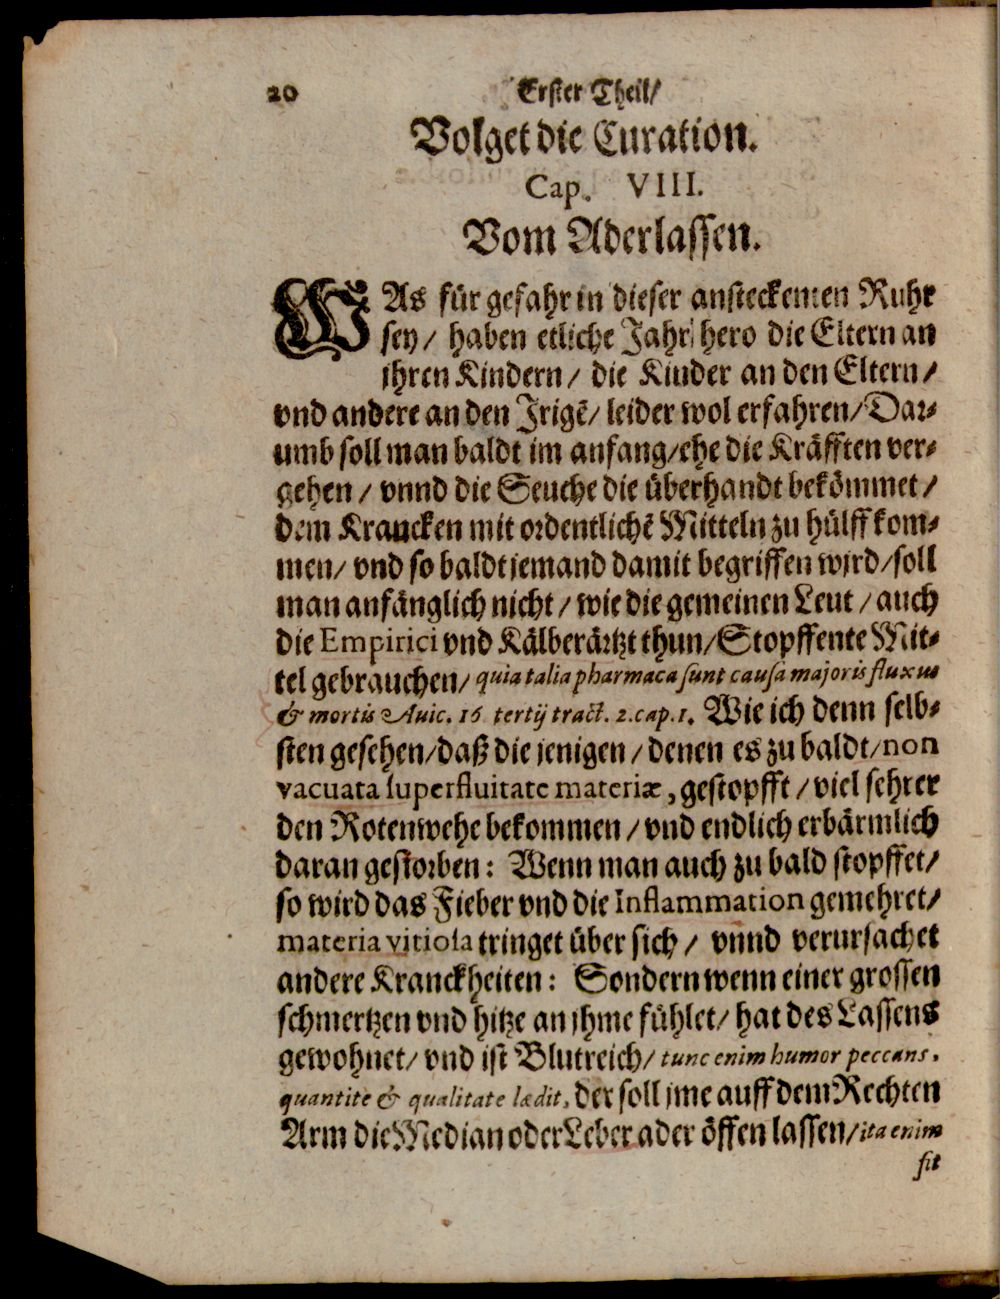 20 Erster Theil/
Volget die Curation.
Cap. VIII.
Vom Aderlassen.
WAs für gefahr in dieser ansteckenten Ruhr
sey / haben etliche Jahr hero die Eltern an
ihren Kindern / die Kinder an den Eltern /
vnd andere an den Jrigẽ / leider wol erfahren / Dar-
umb soll man baldt im anfang / ehe die Kräfften ver-
gehen / vnnd die Seuche die überhandt bekömmet /
dem Krancken mit ordentlichẽ Mitteln zu hülff kom-
men / vnd so baldt jemand damit begriffen wird / soll
man anfänglich nicht / wie die gemeinen Leut / auch
die Empirici vnd Kälberärtzt thun / Stopffente Mit-
tel gebrauchen / quia talia pharmaca sunt causa majoris fluxus
& mortis Avic. 16 tertij tract. 2. cap. 1. Wie ich denn selb-
sten gesehen / daß die jenigen / denen es zu baldt / non
vacuata superfluitate materiæ, gestopfft / viel sehrer
den Rotenwehe bekommen / vnd endlich erbärmlich
daran gestorben: Wenn man auch zu bald stopffet /
so wird das Fieber vnd die Inflammation gemehret /
materia vitiosa tringet über sich / vnnd verursachet
andere Kranckheiten: Sondern wenn einer grossen
schmertzen vnd hitze an ihme fühlet / hat des Lassens
gewohnet / vnd ist Blutreich / tunc enim humor peccans.
quantite & qualitate lædit, der soll jme auff dem Rechten
Arm die Median oder Leber ader öffen lassen / ita enim
fit